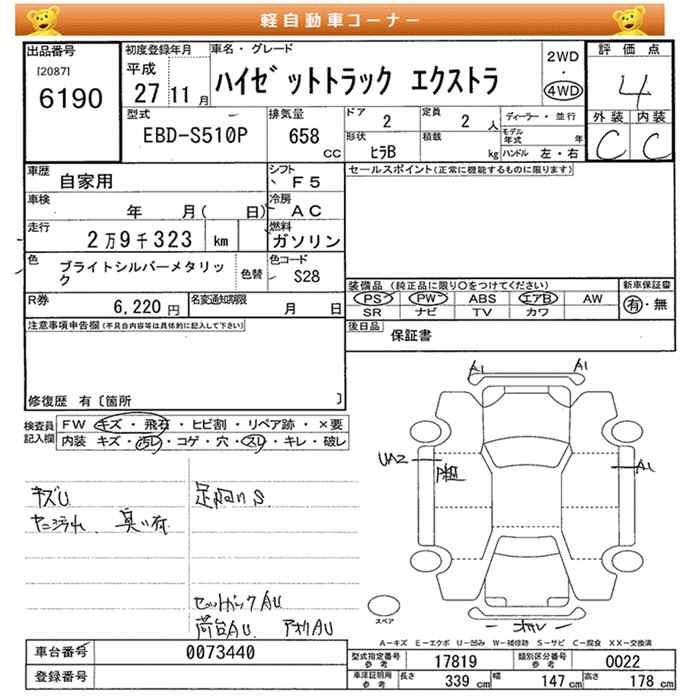 軽自動車コーナー
出品番号 [2087] 6190
初度登録年月 平成 27 11 月
車名・グレード ハイゼットトラック エクストラ
2WD ・ 4WD
評価点 4
外装 内装 C C
型式 EBD-S510P
排気量 658 CC
ドア 2
定員 2 人
ディーラー・並行
形状 ヒラB
積載 kg
モデル年式 年
ハンドル 左・右
車歴 自家用
シフト F5
セールスポイント(正常に機能するものに限ります)
車検 年 月( 日)
冷房 AC
走行 2万9千323 km
燃料 ガソリン
色 ブライトシルバーメタリック
色替
色コード S28
装備品(純正品に限り○をつけてください)
新車保証書
PS PW ABS エアB AW
SR ナビ TV カワ
有・無
R券 6,220 円
名変通知期限 月 日
後日品 保証書
注意事項申告欄(不具合内容等は具体的に記入して下さい)
修復歴 有〔箇所 〕
検査員記入欄
FW キズ・飛石・ヒビ割・リペア跡・×要
内装 キズ・汚レ・コゲ・穴・スレ・キレ・破レ
キズU
足回りS
臭い有
荷台AU
A1 A1
UA2
A1
スペア
A-キズ E-エクボ U-凹み W-補修跡 S-サビ C-腐食 XX-交換済
車台番号 0073440
登録番号
型式指定番号 参考 17819
類別区分番号 参考 0022
車庫証明用 参考 長さ 339 cm 幅 147 cm 高さ 178 cm